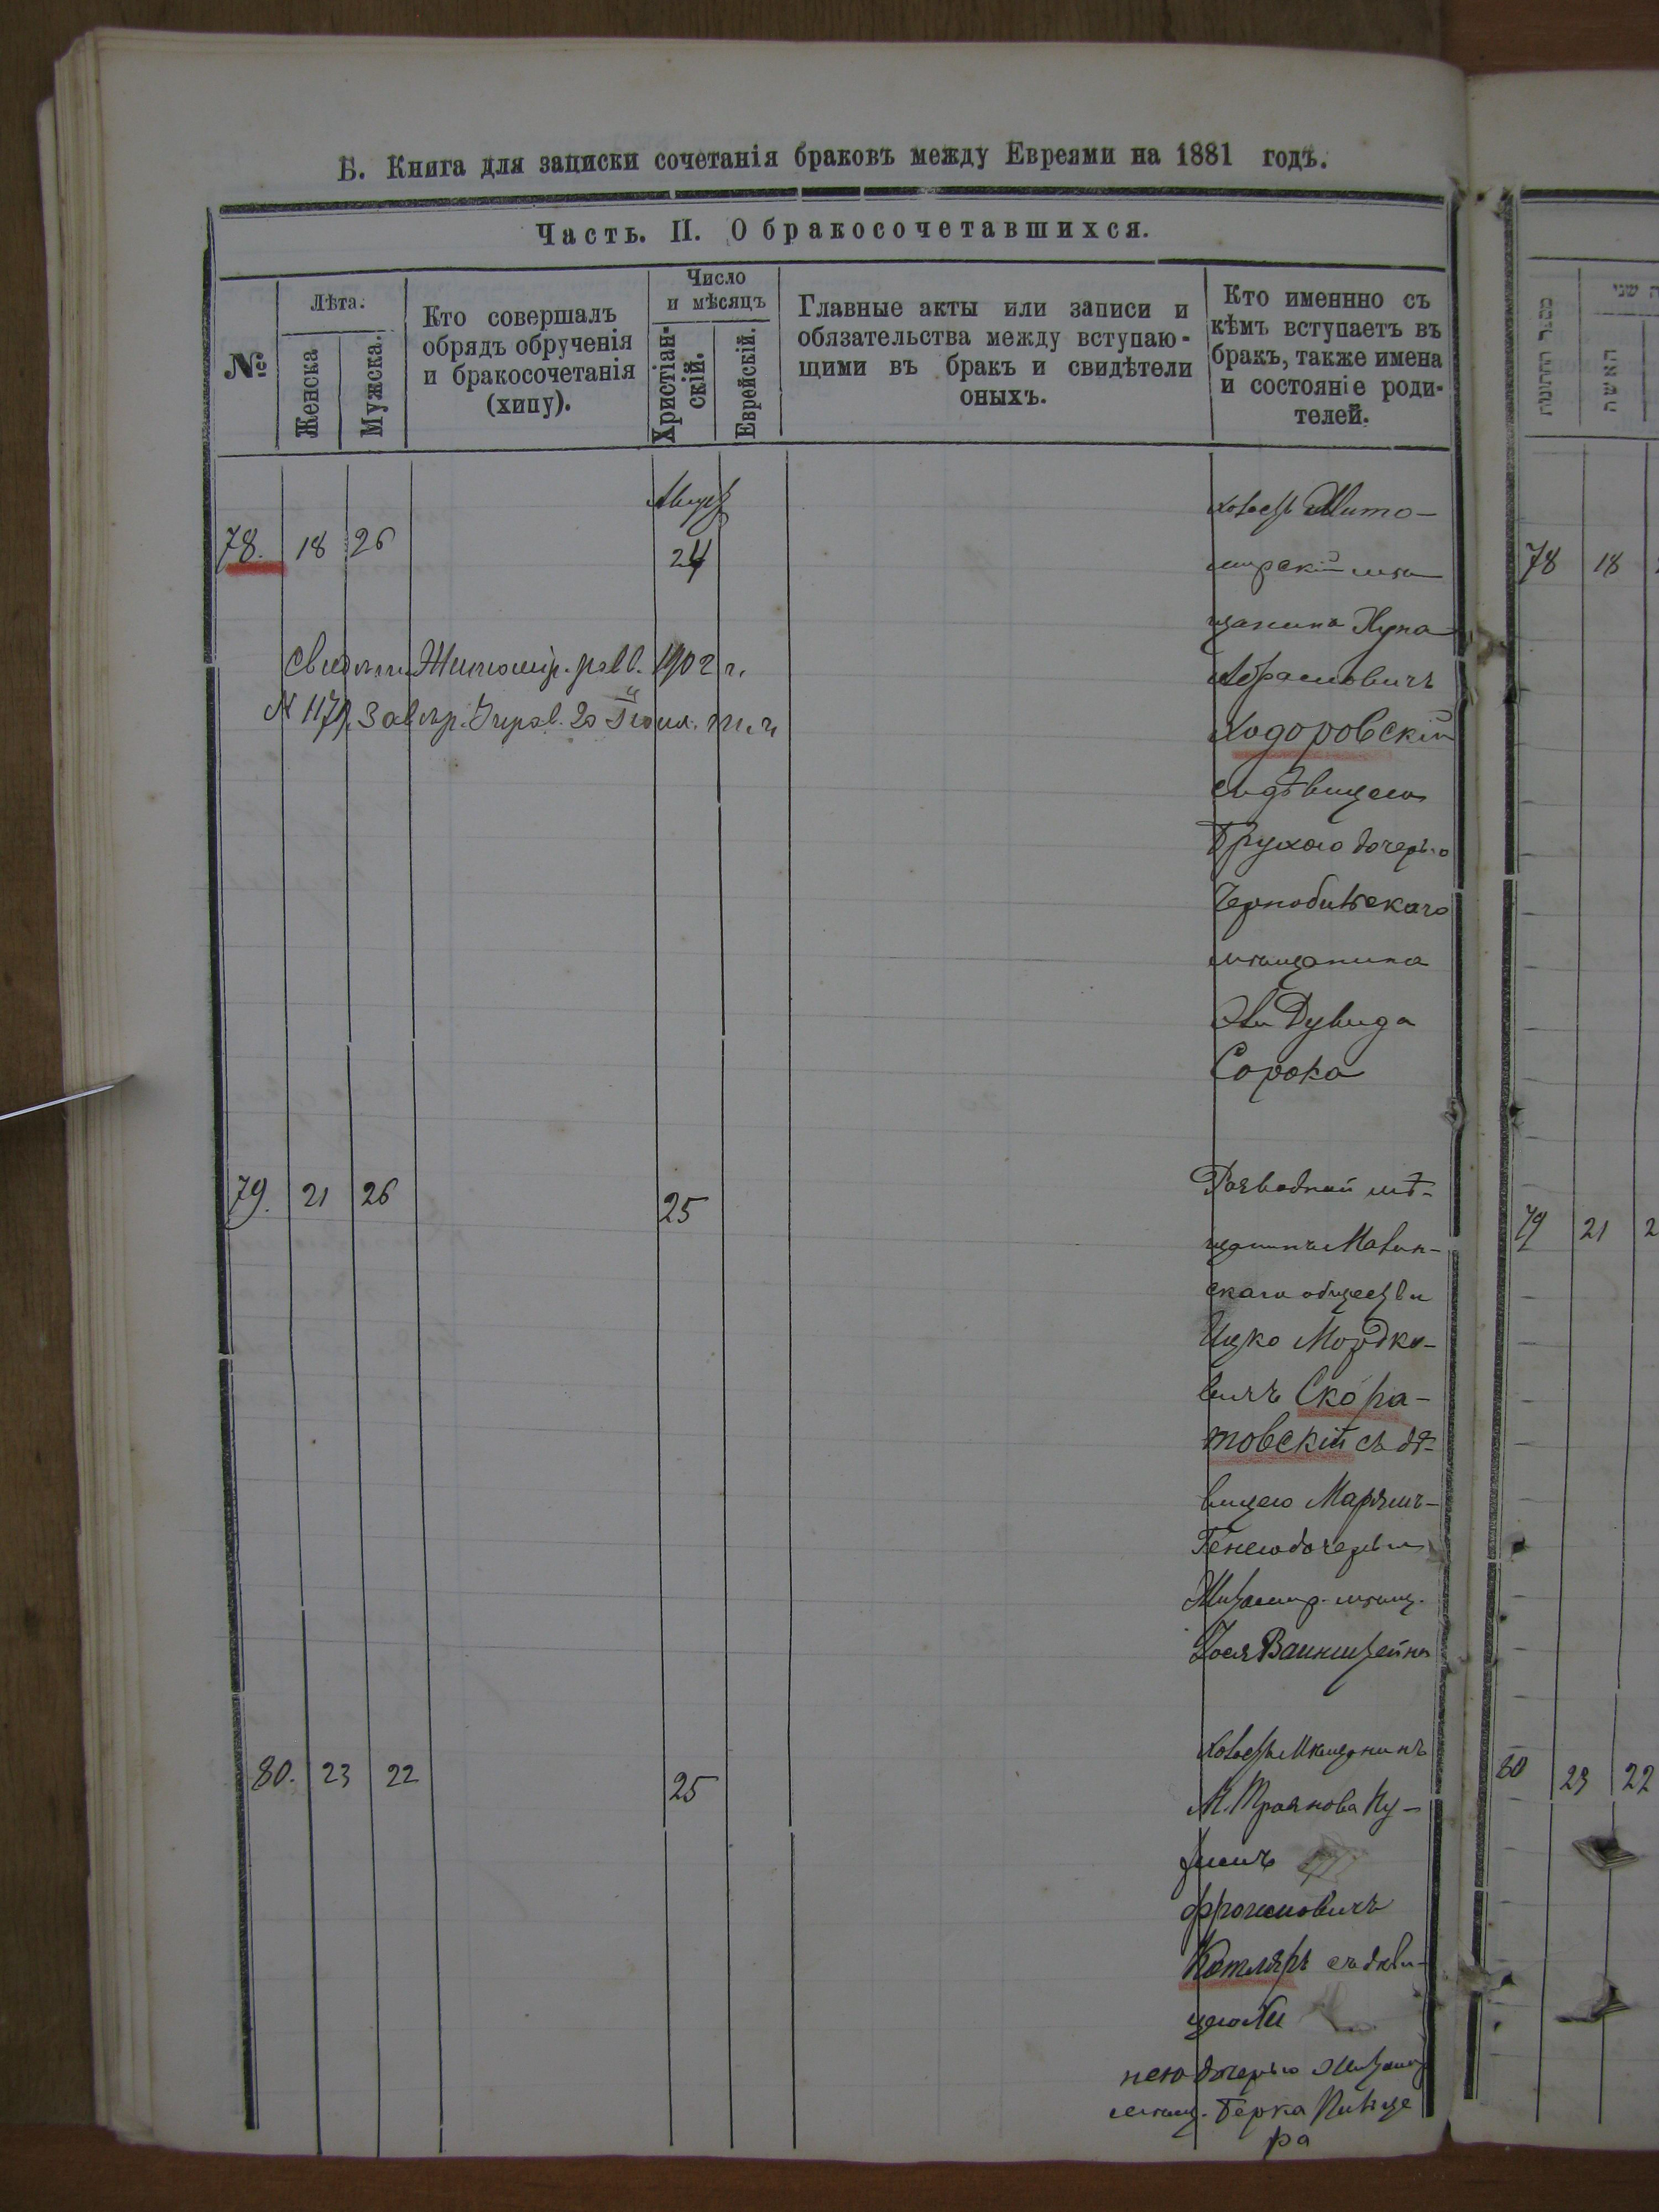 Б. Книга для записки сочетанія браковъ между Евреями на 1881 годъ.
Часть. II. О бракосочетавшихся.
№
Лѣта:
Женска
Мужска.
Кто совершалъ
обрядъ обрученія
и бракосочетанія
(хипу).
Число
и мѣсяцъ
Христіан-
скій.
Еврейскій.
Главные акты или записи и
обязательства между вступаю-
щими въ бракъ и свидѣтели
оныхъ.
Кто именнно съ
кѣмъ вступаетъ въ
бракъ, также имена
и состояніе роди-
телей.
Август
78. 18 26
24
Холост Жито-
мирскій мѣ-
щанинъ Нута
Абрамовичъ
Ходоровскій
съ дѣвицею
Брухою дочерью
Чернобильскаго
мѣщанина
Дувида
Сорока
Житомір. 1902 г.
N 117
79. 21 26
25
Разводный мѣ-
щанинъ
скаго общества
Ицко Мордко-
вичъ Скора-
товскій съ дѣ-
вицею Марямъ-
Генею дочерью
Житомир. мѣщ.
Вайнштейна
80. 23 22
25
Холостъ Мѣщанинъ
М. Троянова
Фроимовичъ
Котляръ съ дѣви-
цею
нею дочерью Житом
мѣщ. Берка
ра
מספר החתונה
האשה
שני
78 18
79 21 2
80 23 22